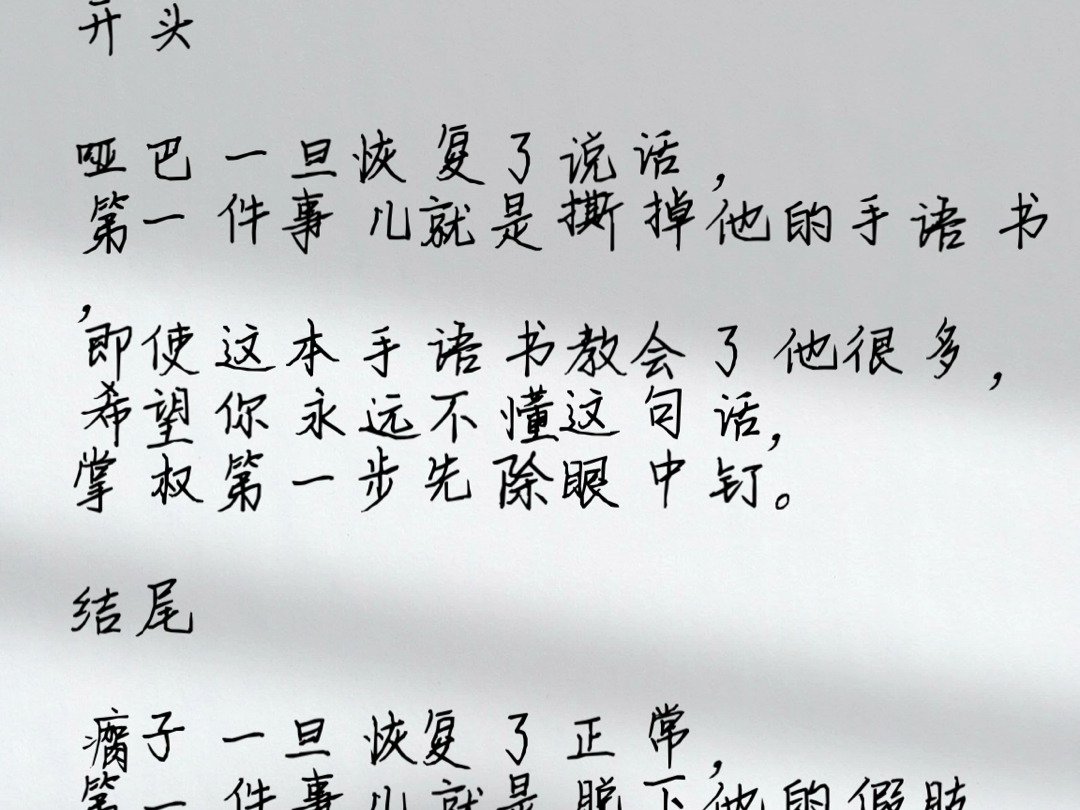 开头
哑巴一旦恢复了说话，
第一件事儿就是撕掉他的手语书
，
即使这本手语书教会了他很多，
希望你永远不懂这句话，
掌权第一步先除眼中钉。
结尾
瘸子一旦恢复了正常，
第一件事儿就是脱下他的假肢